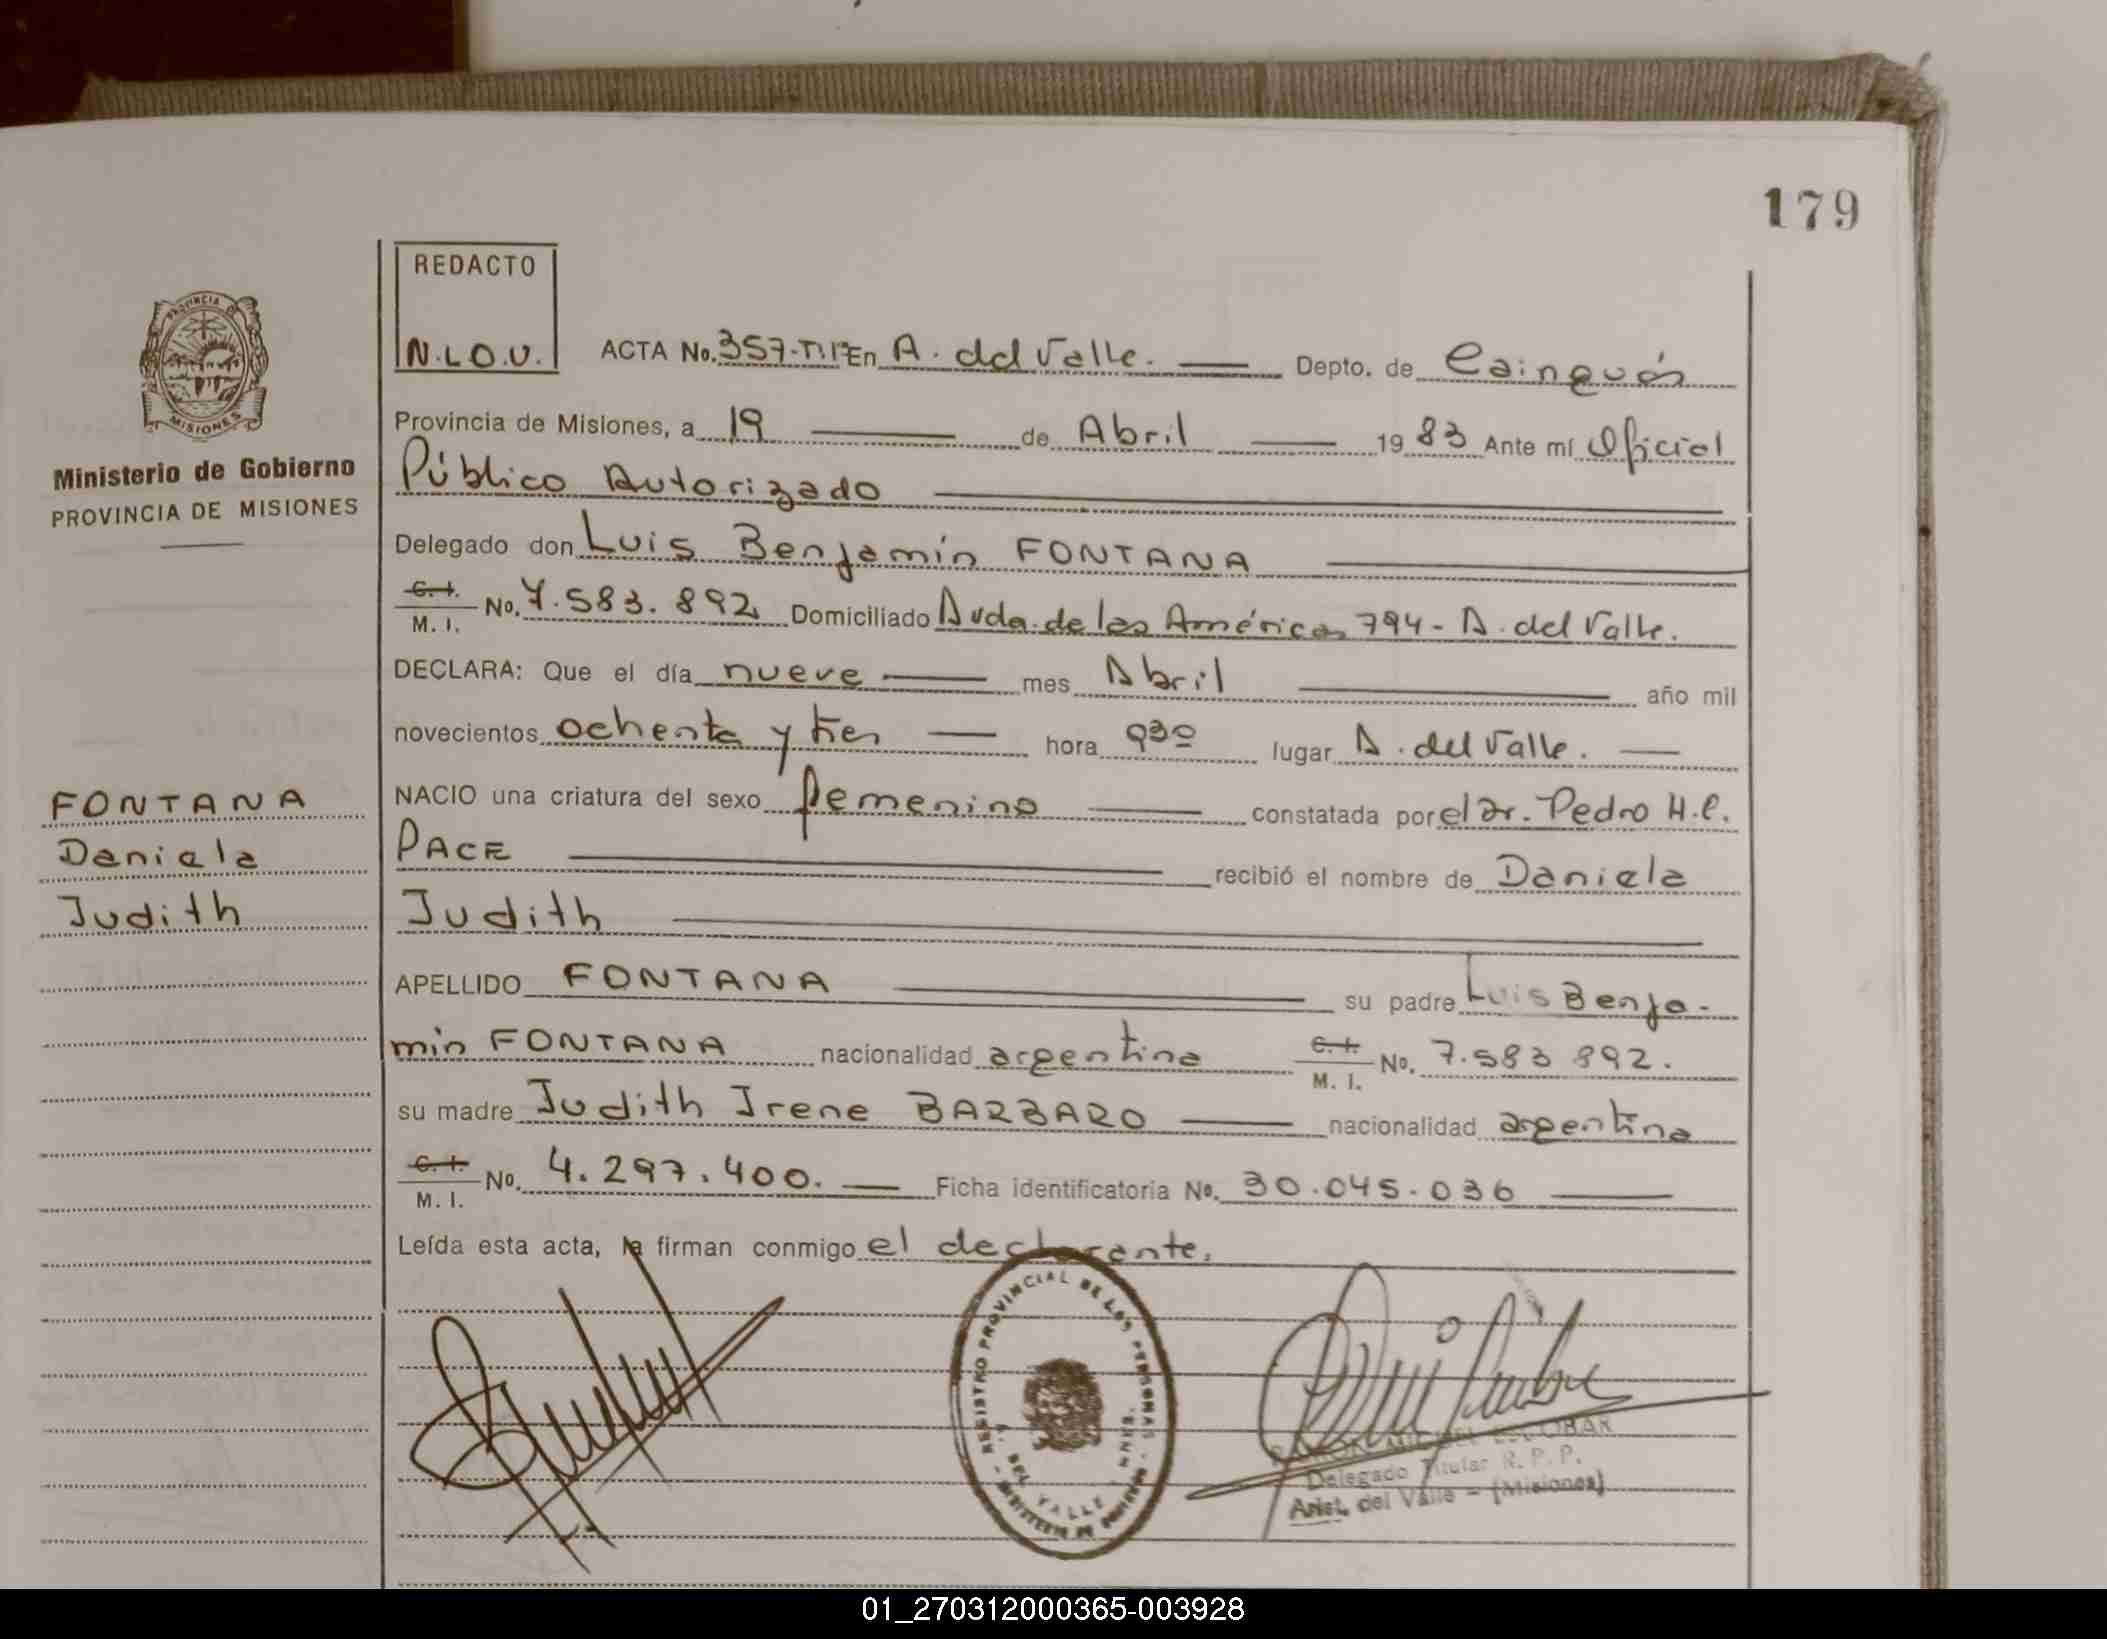 179
REDACTO
N.L.O.V.
PROVINCIA DE
MISIONES
Ministerio de Gobierno
PROVINCIA DE MISIONES
FONTANA
Daniela
Judith
ACTA No. 357-T.1º En A. del Valle. Depto. de Cainguás
Provincia de Misiones, a 19 de Abril 1983 Ante mí Oficial
Público Autorizado
Delegado don Luis Benjamín FONTANA
C. I. M. I. No. 7.583.892 Domiciliado Avda. de las Américas 794 - A. del Valle.
DECLARA: Que el día nueve mes Abril año mil
novecientos ochenta y tres hora 930 lugar A. del Valle.
NACIO una criatura del sexo femenino constatada por el Dr. Pedro H.C.
PACE recibió el nombre de Daniela
Judith
APELLIDO FONTANA su padre Luis Benja-
min FONTANA nacionalidad argentina C. I. M. I. No. 7.583 892.
su madre Judith Irene BARBARO nacionalidad argentina
C. I. M. I. No. 4.297.400. Ficha identificatoria No. 30.045.036
Leída esta acta, la firman conmigo el declarante.
REGISTRO PROVINCIAL DE LAS PERSONAS
DEL VALLE
RAMON MIGUEL ESCOBAR
Delegado Titular R. P. P.
Arist. del Valle - (Misiones)
01_270312000365-003928